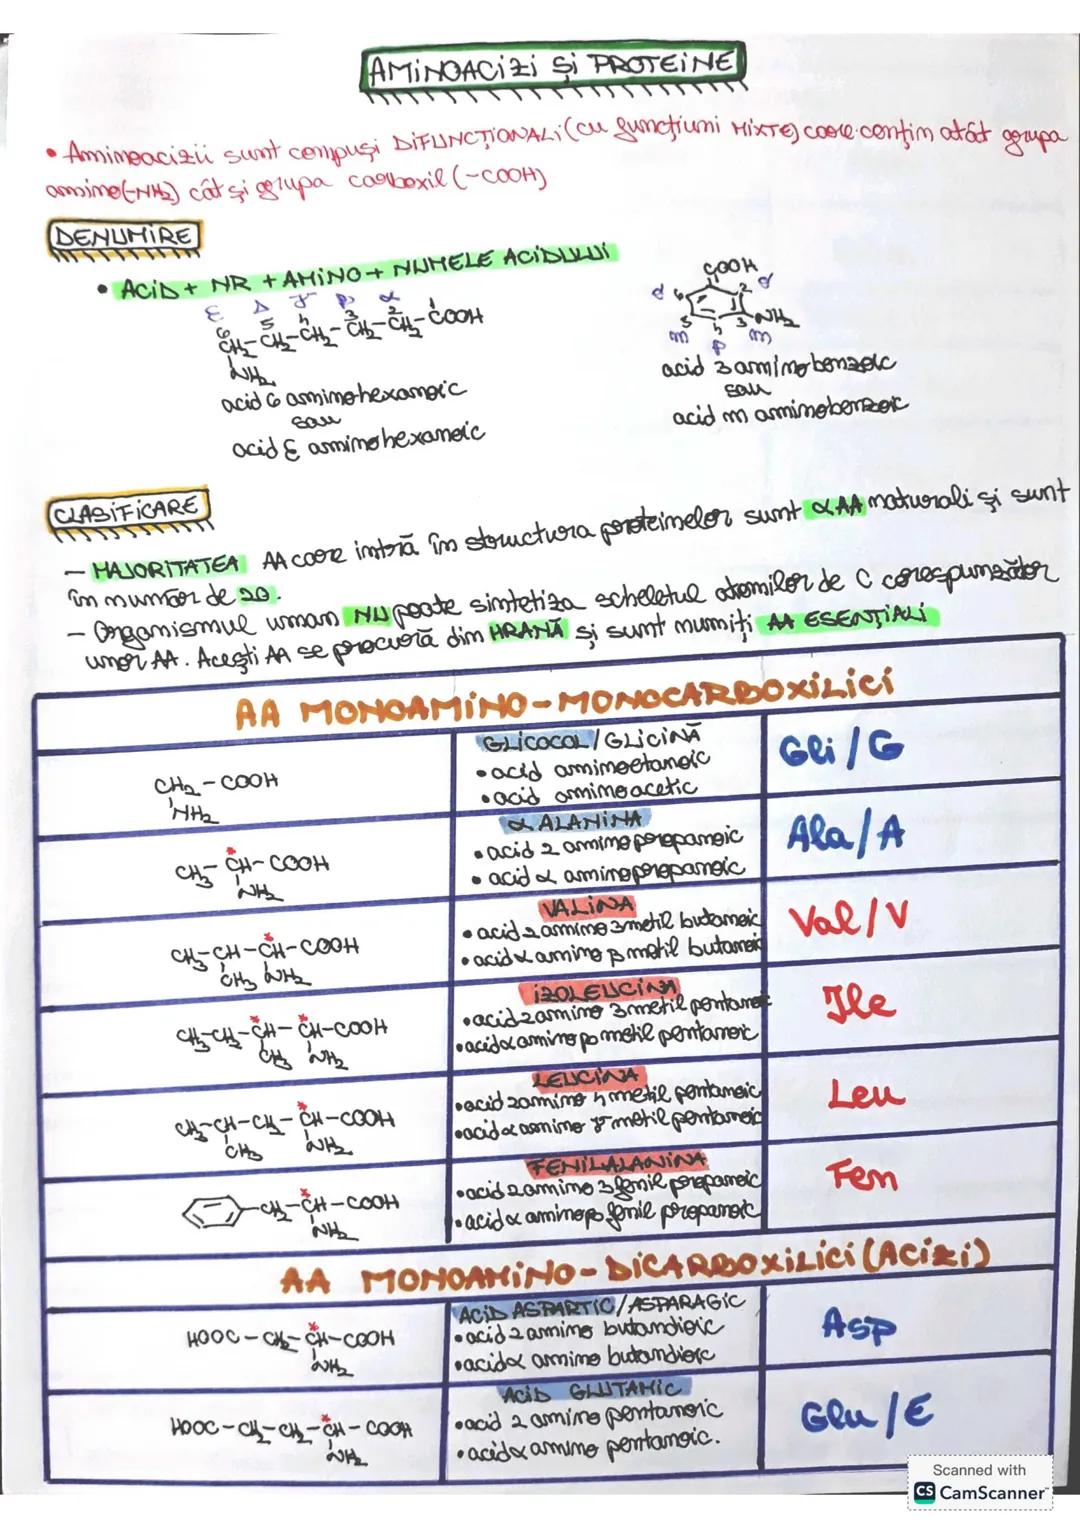 AMINOACIZI ȘI PROTEINE
• Aminoacizii sunt compuși DIFUNCȚIONALI (cu funcțiuni MIXTE) care conțin atât grupa
amino(-NH2) cât și grupa carboxil (-COOH)
DENUMIRE
• ACID + NR + AMINO + NUMELE ACIDULUI
ε Δ γ β α
6 5 4 3 2 1
CH2-CH2-CH2-CH2-CH2-COOH
NH2
acid 6 aminohexanoic
sau
acid ε aminohexanoic
COOH
o 6 2 o
5 4 3 NH2
m p m
acid 3 aminobenzoic
sau
acid m aminobenzoic
CLASIFICARE
- MAJORITATEA AA care intră în structura proteinelor sunt αAA naturali și sunt
în număr de 20.
- Organismul uman NU poate sintetiza scheletul atomilor de C corespunzător
unor AA. Acești AA se procură din HRANĂ și sunt numiți AA ESENȚIALI
AA MONOAMINO-MONOCARBOXILICI
CH2 - COOH
NH2
GLICOCOL/GLICINĂ
• acid aminoetanoic
• acid aminoacetic
Gli/G
CH3 - CH - COOH
NH2
α ALANINA
• acid 2 amino propanoic
• acid α aminopropanoic
Ala/A
CH3-CH-CH-COOH
CH3 NH2
VALINA
• acid 2 amino 3 metil butanoic
• acid α amino β metil butanoic
Val/V
CH3-CH2-CH-CH-COOH
CH3 NH2
IZOLEUCINA
• acid 2 amino 3 metil pentanoic
• acid α amino β metil pentanoic
Ile
CH3-CH-CH2-CH-COOH
CH3 NH2
LEUCINA
• acid 2 amino 4 metil pentanoic
• acid α amino γ metil pentanoic
Leu
-CH2-CH-COOH
NH2
FENILALANINA
• acid 2 amino 3 fenil propanoic
• acid α amino β fenil propanoic
Fen
AA MONOAMINO-DICARBOXILICI (ACIZI)
HOOC - CH2 - CH - COOH
NH2
ACID ASPARTIC/ASPARAGIC
• acid 2 amino butandioic
• acid α amino butandioic
Asp
HOOC-CH2-CH2-CH-COOH
NH2
ACID GLUTAMIC
• acid 2 amino pentanoic
• acid α amino pentanoic.
Glu/E
Scanned with
CS CamScanner